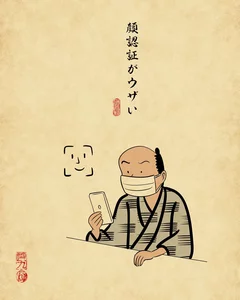 顔認証がウザい